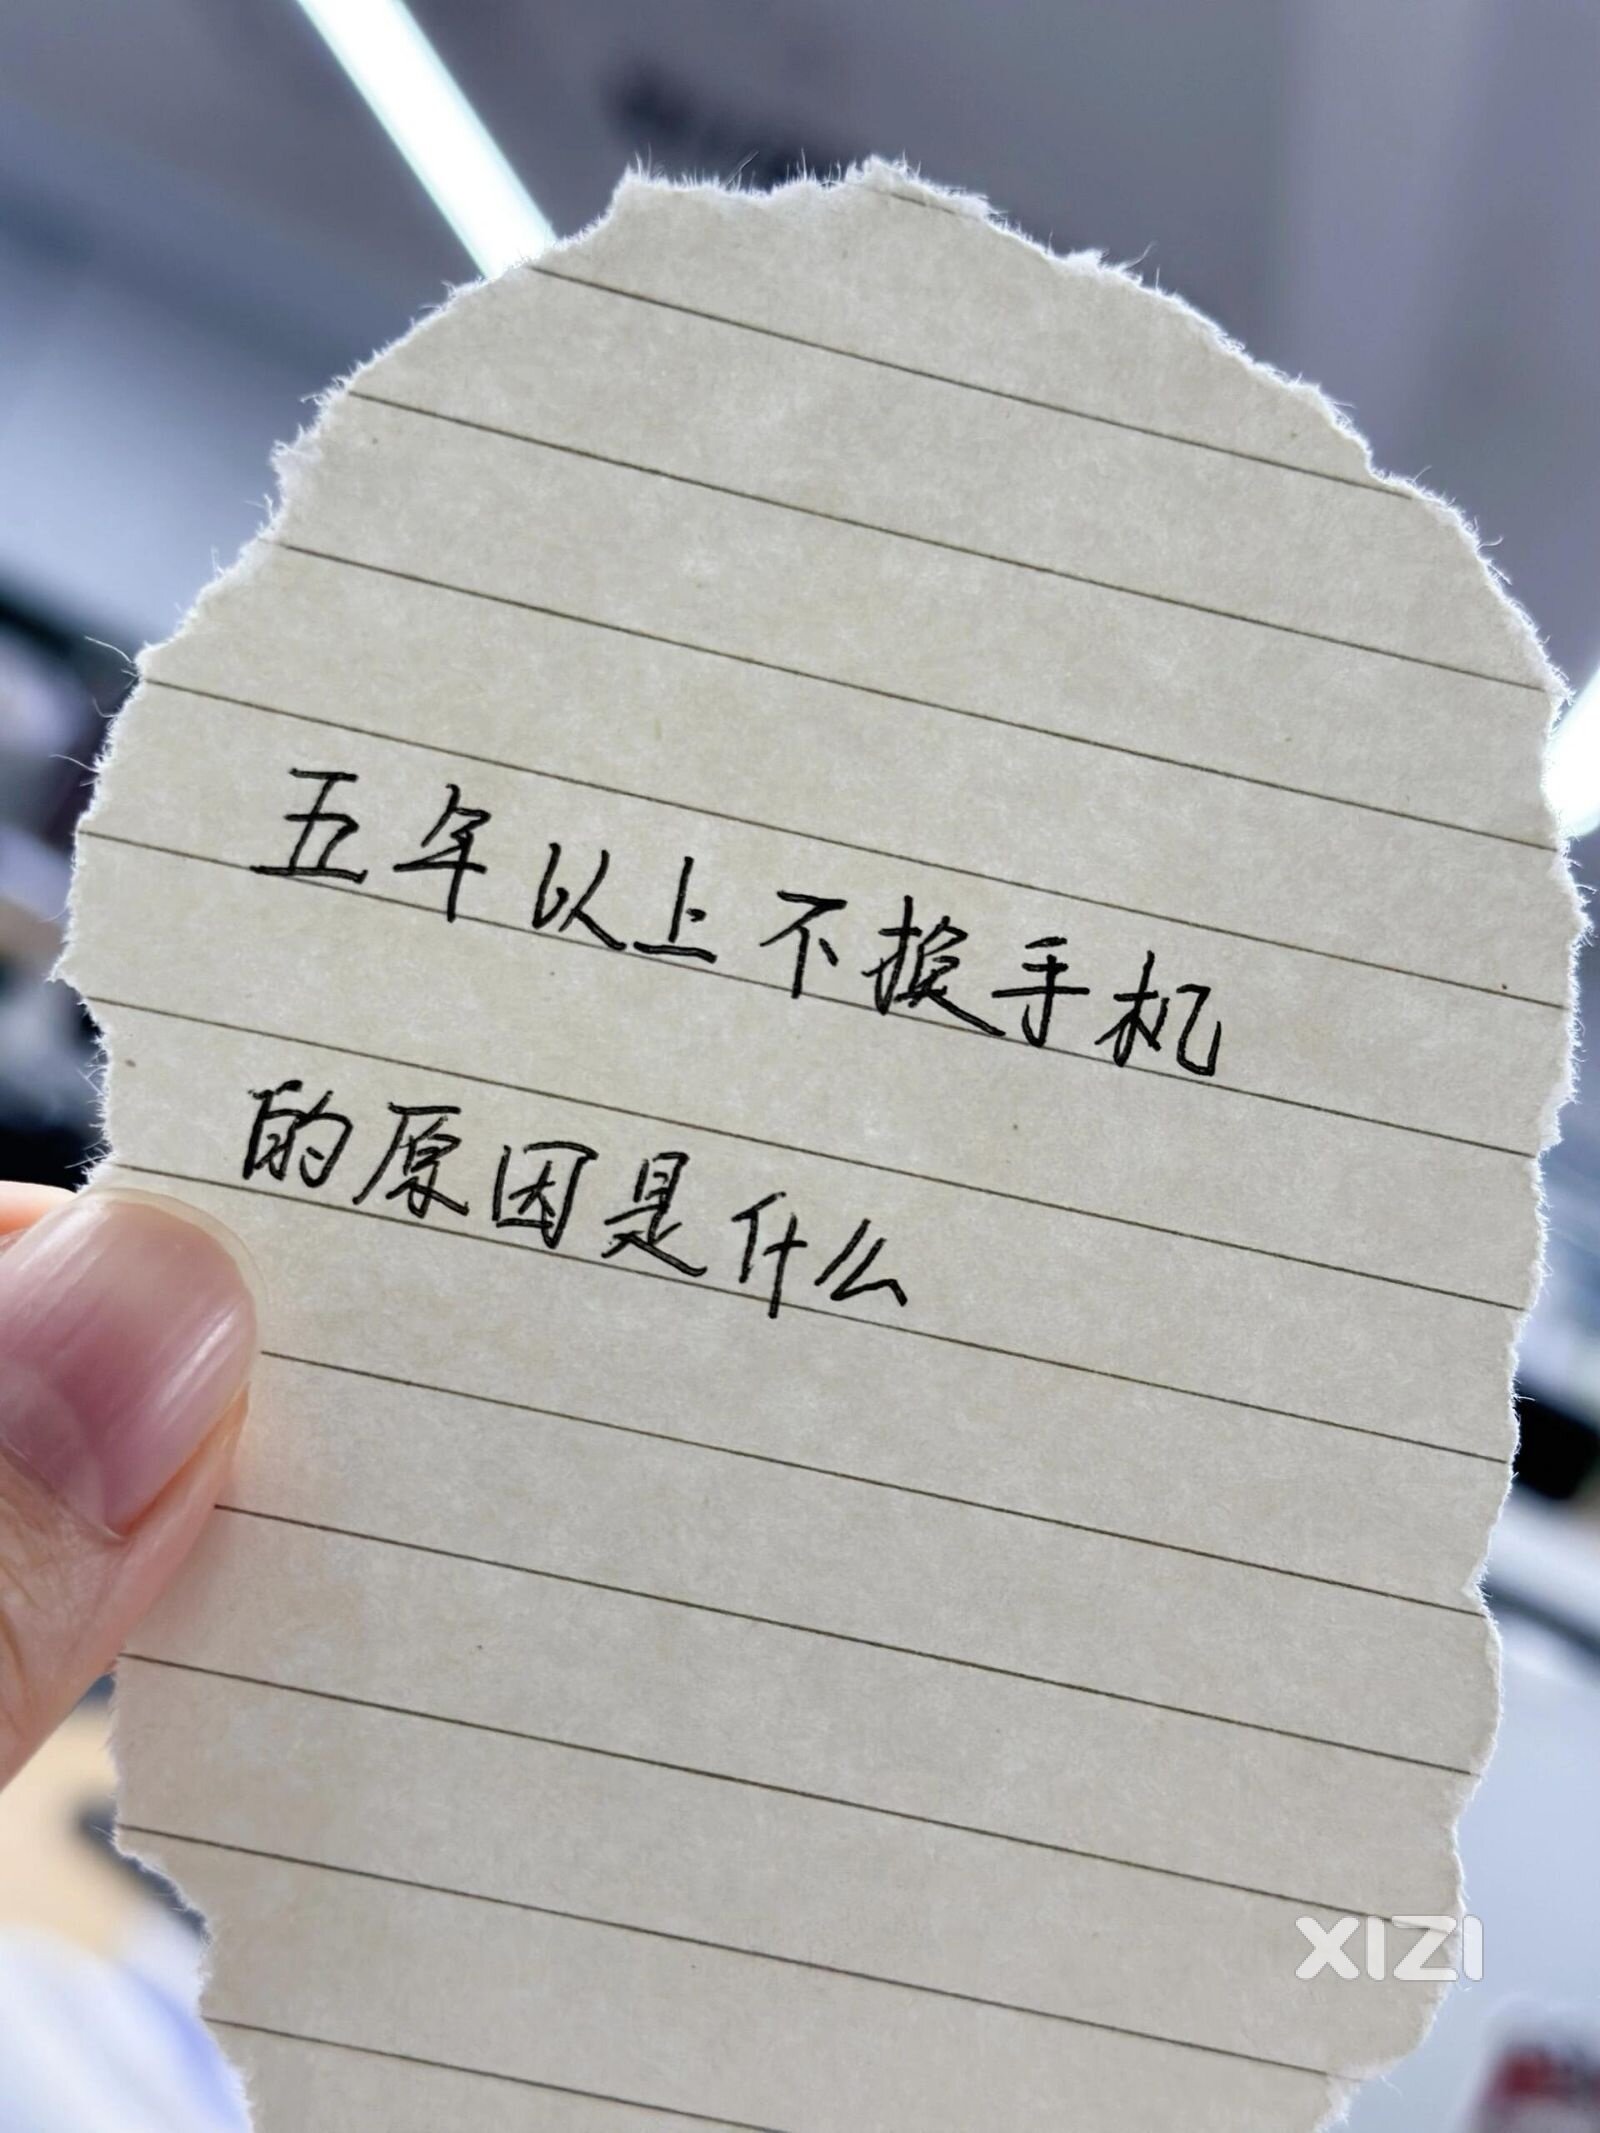 五年以上不换手机
的原因是什么
XIZI